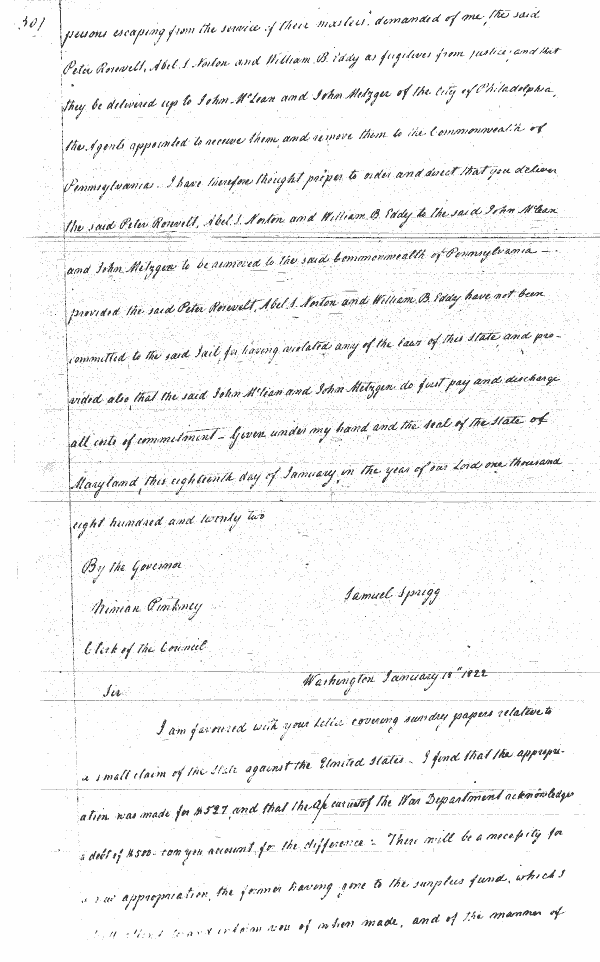 301
persons escaping from the service of their masters", demanded of me, the said
Peter Rosevelt, Abel S. Norton and William B. Eddy as fugitives from justice, and that
they be delivered up to John McLean and John Metzger of the City of Philadelphia,
the Agents appointed to receive them and remove them to the Commonwealth of
Pennsylvania. I have therefore thought proper to order and direct that you deliver
the said Peter Rosevelt, Abel S. Norton and William B. Eddy to the said John McLean
and John Metzger to be removed to the said Commonwealth of Pennsylvania —
provided the said Peter Rosevelt, Abel S. Norton and William B. Eddy have not been
committed to the said Jail for having violated any of the laws of this State, and pro-
vided also, that the said John McLean and John Metzger do first pay and discharge
all costs of commitment – Given under my hand, and the seal of the State of
Maryland, this eighteenth day of January, in the year of our Lord one thousand
eight hundred and twenty two
By the Governor
Ninian Pinkney
Samuel Sprigg
Clerk of the Council
Washington January 18th 1822
Sir
I am favoured with your letter covering sundry papers relative to
a small claim of the State against the United States – I find that the appropri-
ation was made for $527 and that the of the War Department acknowledges
a debt of $500 – can you account for the difference – There will be a necessity for
a new appropriation, the former having gone to the surplus fund, which I
shall and inform you of when made, and of the manner of